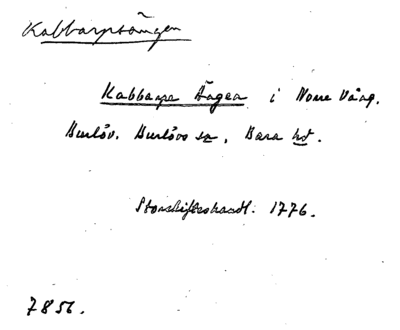 Kabbarpsängen
Kabbarps Ängen i Norre Vång.
Burlöv. Burlövs sn, Bara hd.
Storskifteshandl. 1776.
7856.